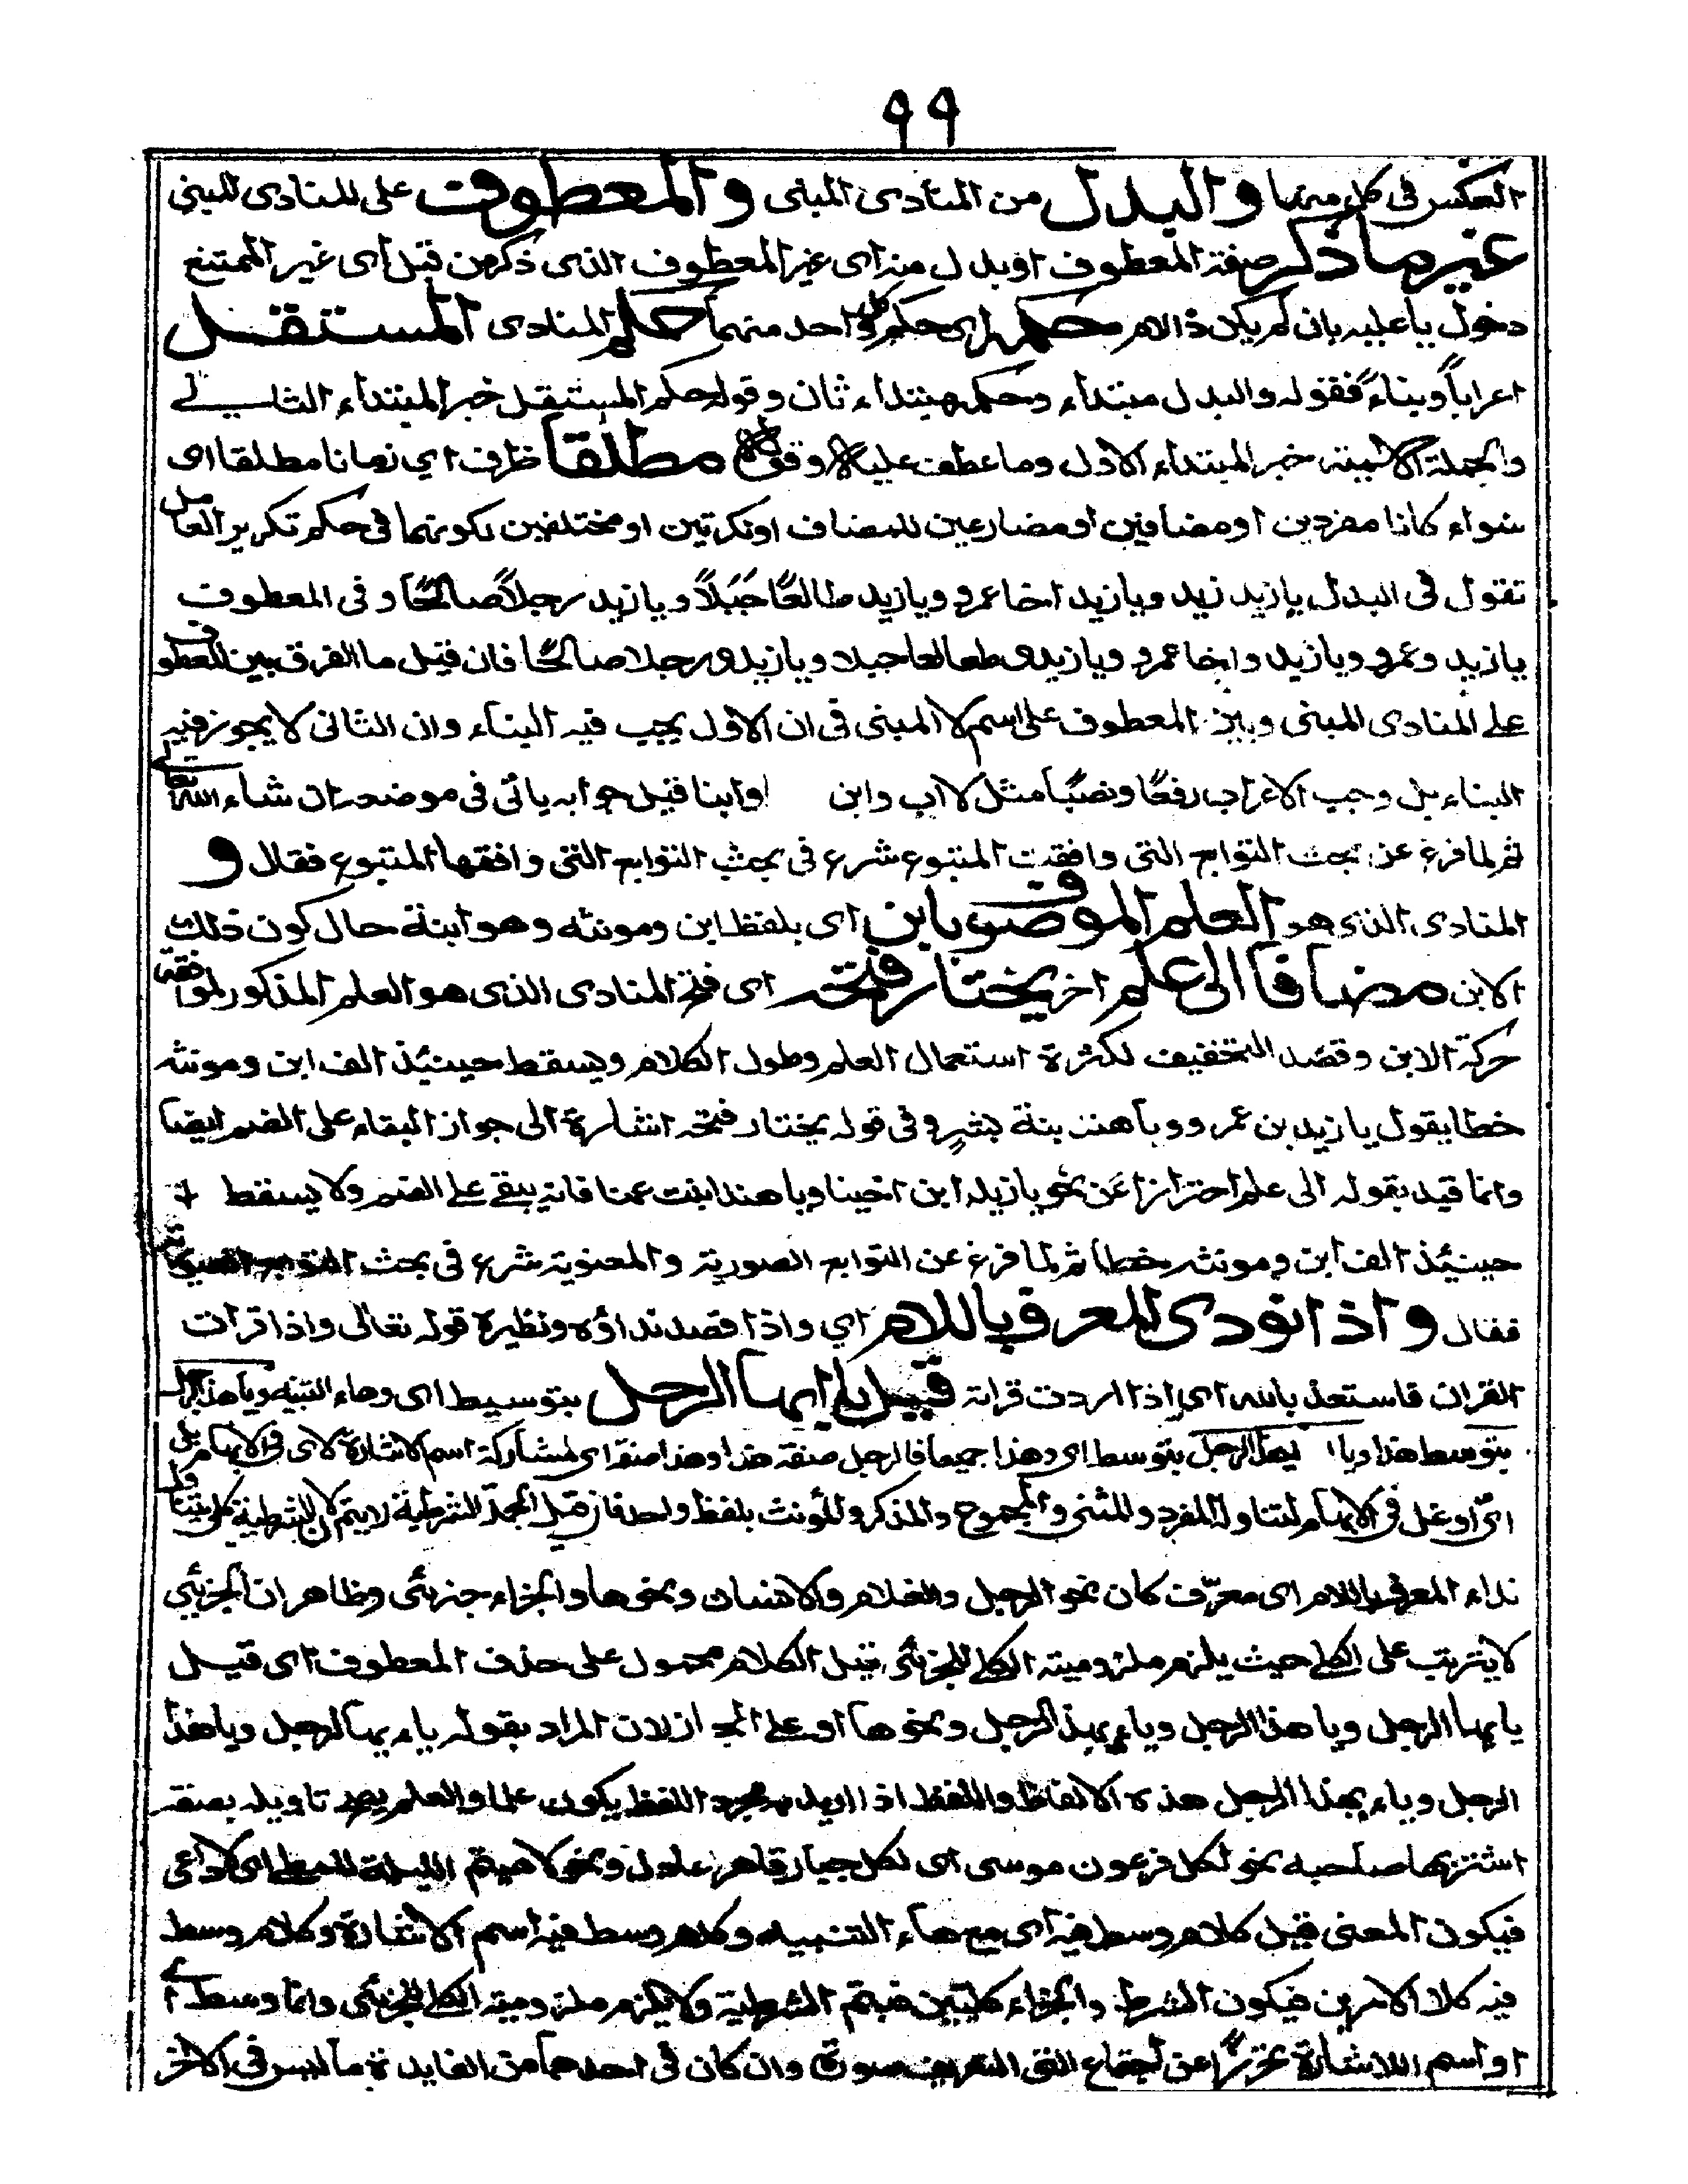 ٩٩
العكس فى كل منهما والبدل من المنادى المبنى والمعطوف على المنادى المبنى
غير ما ذكر صفة المعطوف او بدل منه اى غير المعطوف الذى ذكر من قبل اى غير الممتنع
دخول يا عليه بان لم يكن ذا اللام حكمه اى حكم كل واحد منهما حكم المنادى المستقل
اعراباً وبناءً فقوله والبدل مبتداء وحكمه مبتداء ثان وقوله حكم المستقل خبر المبتداء الثانى
والجملة الاسمية خبر المبتداء الاول وما عطف عليه وقوله مطلقا ظرف اى زمانا مطلقا اى
سواء كانا مفردين او مضافين او مضارعين للمضاف او نكرتين او مختلفين لكونهما فى حكم تكرير العامل
تقول فى البدل يا زيد زيد ويا زيد اخا عمرو ويا زيد طالعًا جَبَلاً ويا زيد رجلاً صالحًا وفى المعطوف
يا زيد وعمرو ويا زيد واخا عمرو ويا زيد وطالعا جبلا ويا زيد ورجلا صالحًا فان قيل ما الفرق بين المعطوف
على المنادى المبنى وبين المعطوف على اسم لا المبنى فى ان الاول يجب فيه البناء وان الثانى لا يجوز فيه
البناء بل وجب الاعراب رفعًا ونصبًا مثل لا اب وابن وابنا قيل جوابه ياتى فى موضعه ان شاء الله تعالى
ثم لما فرغ عن بحث التوابع التى وافقت المتبوع شرع فى بحث التوابع التى وافقها المتبوع فقال و
المنادى الذى هو العلم الموصوف بابن اى بلفظ ابن ومونثه وهو ابنة حال كون ذلك
الابن مضافا الى علم اخر يختار فتحه اى فتح المنادى الذى هو العلم المذكور لموافقة
حركة الابن وقصد التخفيف لكثرة استعمال العلم وطول الكلام ويسقط حينئذ الف ابن ومونثه
خطا يقول يا زيد بن عمرو ويا هند بنة بشر وفى قوله يختار فتحه اشارة الى جواز البقاء على الضم ايضا
وانما قيد بقوله الى علم احترازا عن نحو يا زيد ابن اخينا ويا هند ابنت عمنا فانه يبقى على الضم ولا يسقط
حينئذ الف ابن ومونثه خطا ثم لما فرغ عن التوابع الصورية والمعنوية شرع فى بحث التوابع
فقال واذا نودى المعرف باللام اى واذا قصد نداؤه ونظيره قوله تعالى واذا قرات
القران فاستعذ بالله اى اذا اردت قراته قيل يا ايها الرجل بتوسيط اى وهاء التنبيه ويا هذا الرجل
بتوسط هذا ويا ايهذا الرجل بتوسط اى وهذا جميعا فالرجل صفة هذا وهذا صفة اى لمشاركة اسم الاشارة لاى فى الابهام بل
اى اوغل فى الابهام لتناوله المفرد والمثنى والمجموع والمذكر والمؤنث بلفظ واحد فان قيل الجملة الشرطية لا يتم لان الشرطية كلى يتناول
نداء المعرف باللام اى معرّف كان نحو الرجل والغلام والانسان ونحوها والجزاء جزئى وظاهر ان الجزئى
لا يترتب على الكلى حيث يلزم ملزومية الكلى للجزئى قيل الكلام محمول على حذف المعطوف اى قيل
يا ايها الرجل ويا هذا الرجل ويا ايهذا الرجل ونحوها او على المجاز لان المراد بقوله يا ايها الرجل ويا هذا
الرجل ويا ايهذا الرجل هذه الالفاظ واللفظ اذا اريد به مجرد اللفظ يكون علما والعلم يصح تاويله بصفة
اشتهر بها صاحبه نحو لكل فرعون موسى اى لكل جبار قاهر عادل ونحو لا هيثم الليلة للمطى اى لا داعى
فيكون المعنى قيل كلام وسط فيه اى مع هاء التنبيه وكلام وسط فيه اسم الاشارة وكلام وسط
فيه كلا الامرين فيكون الشرط والجزاء كليين فيتم الشرطية ولا يلزم ملزومية الكلى للجزئى وانما وسط اى
او اسم الاشارة تحرزًا عن اجتماع التى التعريف صورة وان كان فى احدهما من الفايدة ما ليس فى الاخر